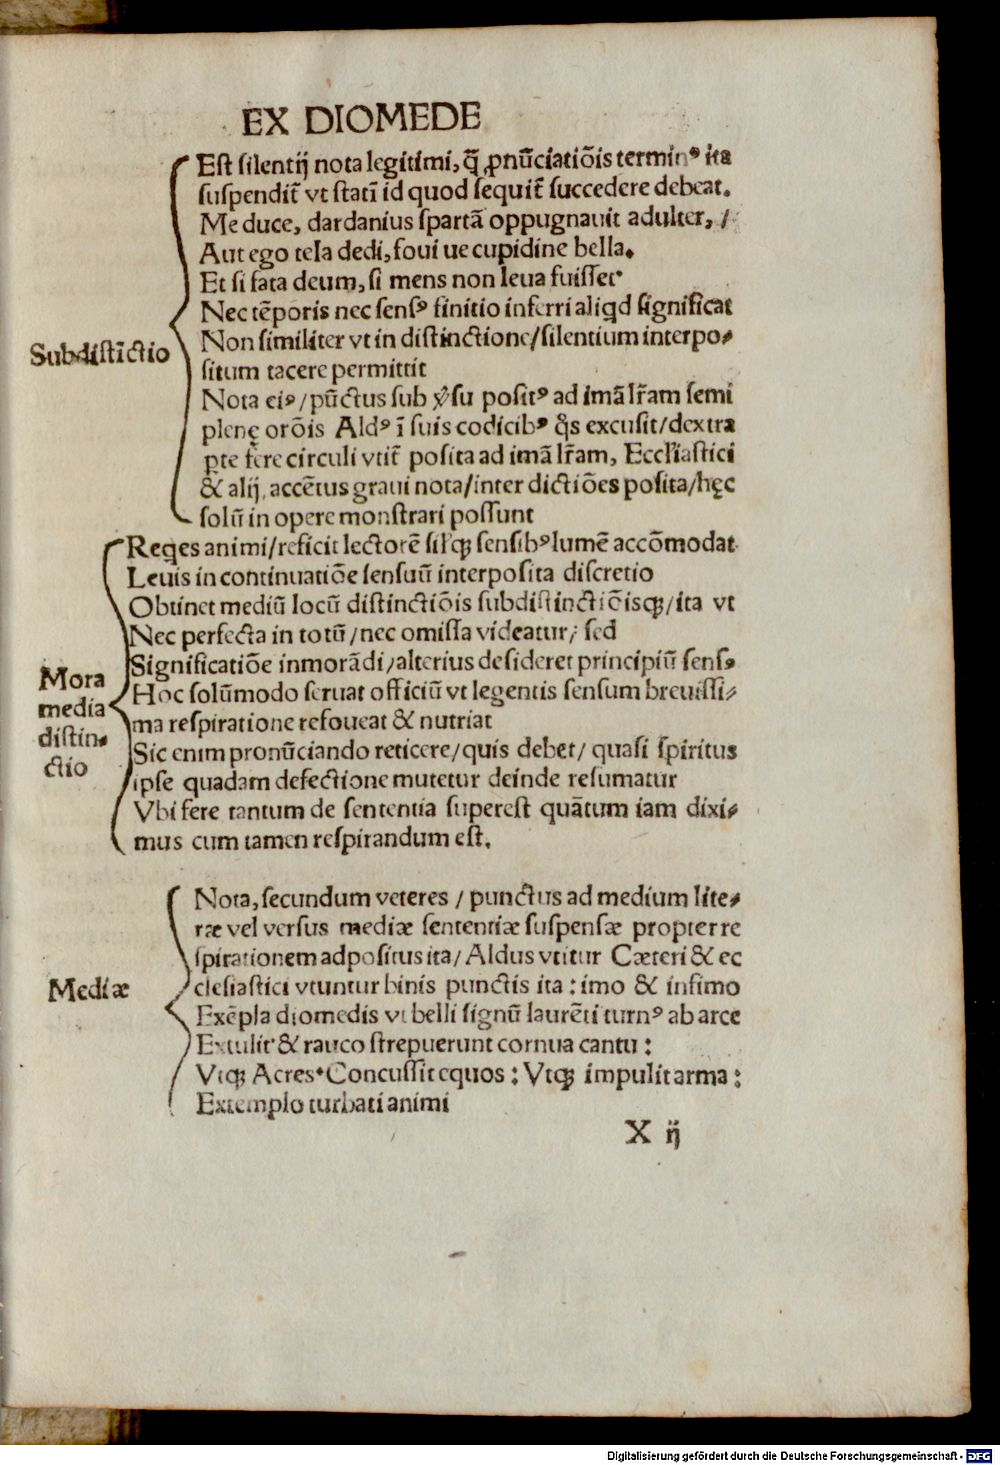 EX DIOMEDE
Subdistĩctio
Est silentij nota legitimi, q̃ ꝓnũciatiõis terminꝰ ita
suspendit̃ vt statĩ id quod sequit̃ succedere debeat.
Me duce, dardanius spartã oppugnauit adulter, /
Aut ego tela dedi, foui ue cupidine bella.
Et si fata deum, si mens non leua fuisset
Nec tẽporis nec sensꝰ finitio inferri aliqd significat
Non similiter vt in distinctione/silentium interpo⸗
situm tacere permittit
Nota eiꝰ/pũctus sub v̓su positꝰ ad imã lr̃am semi
plenę orõis Aldꝰ ĩ suis codicibꝰ q̃s excusit/dextra
p̱te fere circuli vtit̃ posita ad imã lr̃am, Eccl'iastici
& alij, accẽtus graui nota/inter dictiões posita/hęc
solũ in opere monstrari possunt
Mora
media
distin⸗
ctio
Reges animi/reficit lectorẽ sil'qꝫ sensibꝰ lumẽ accõmodat
Leuis in continuatiõe sensuũ interposita discretio
Obtinet mediũ locũ distinctiõis subdistinctiõisqꝫ/ita vt
Nec perfecta in totũ/nec omissa videatur/ sed
Significatiõe inmorãdi/alterius desideret principiũ sensꝰ
Hoc solũmodo seruat officiũ vt legentis sensum breuissi⸗
ma respiratione refoueat & nutriat
Sic enim pronũciando reticere/quis debet/ quasi spiritus
ipse quadam defectione mutetur deinde resumatur
Vbi fere tantum de sententia superest quãtum iam dixi⸗
mus cum tamen respirandum est.
Mediæ
Nota, secundum veteres / punctus ad medium lite⸗
ræ vel versus mediæ sententiæ suspensæ propter re
spirationem adpositus ita/ Aldus vtitur Cæteri & ec
clesiastici vtuntur binis punctis ita : imo & infimo
Exẽpla diomedis vt belli signũ laurẽti turnꝰ ab arce
Extulit & rauco strepuerunt cornua cantu :
Vtqꝫ Acres·Concussit equos : Vtqꝫ impulit arma :
Extemplo turbati animi
X ij
Digitalisierung gefördert durch die Deutsche Forschungsgemeinschaft - DFG